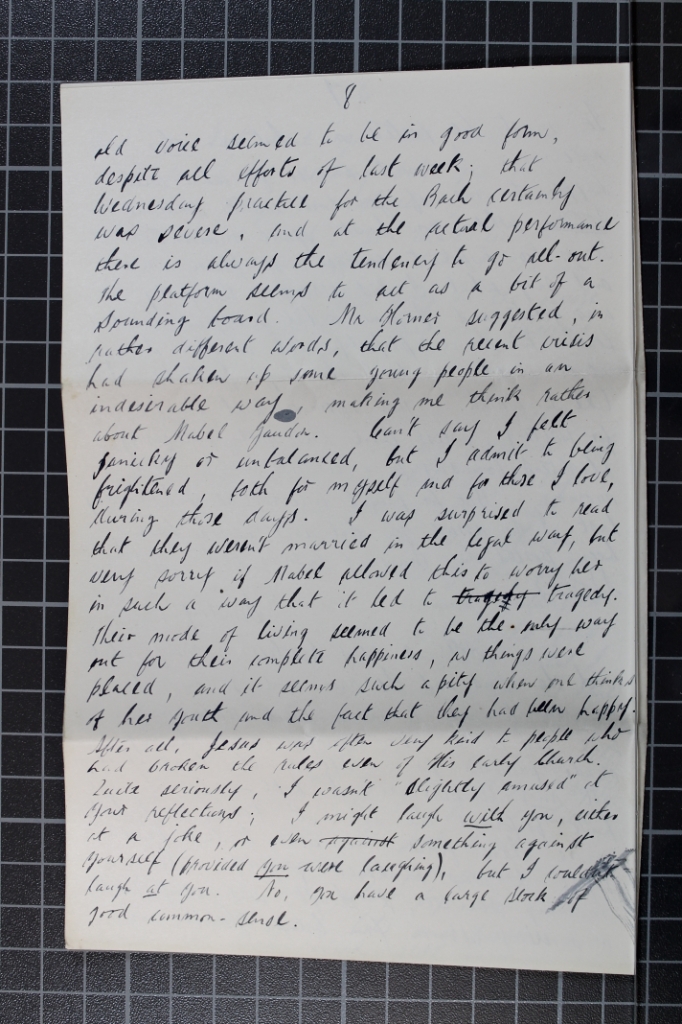 8
old voice seemed to be in good form,
despite all efforts of last week; that
Wednesday practice for the Bach certainly
was severe, and at the actual performance
there is always the tendency to go all-out.
The platform seems to act as a bit of a
sounding board. Mr Horner suggested, in
rather different words, that the recent crisis
had shaken up some young people in an
undesirable way, making me think rather
about Mabel. Can't say I felt
panicky or unbalanced, but I admit to being
frightened, both for myself and for those I love,
during those days. I was surprised to read
that they weren't married in the legal way, but
very sorry if Mabel allowed this to worry her
in such a way that it led to tragedy tragedy.
Their mode of living seemed to be the only way
out for their complete happiness, as things were
placed, and it seems such a pity when one thinks
of her youth and the fact that they had been happy.
After all, Jesus was often very kind to people who
had broken the rules even of His early Church.
Quite seriously, I wasn't "slightly amused" at
your reflections; I might laugh with you, either
at a joke, or even against something against
yourself (provided you were laughing), but I wouldn't
laugh at you. No, you have a large stock of
good common-sense.